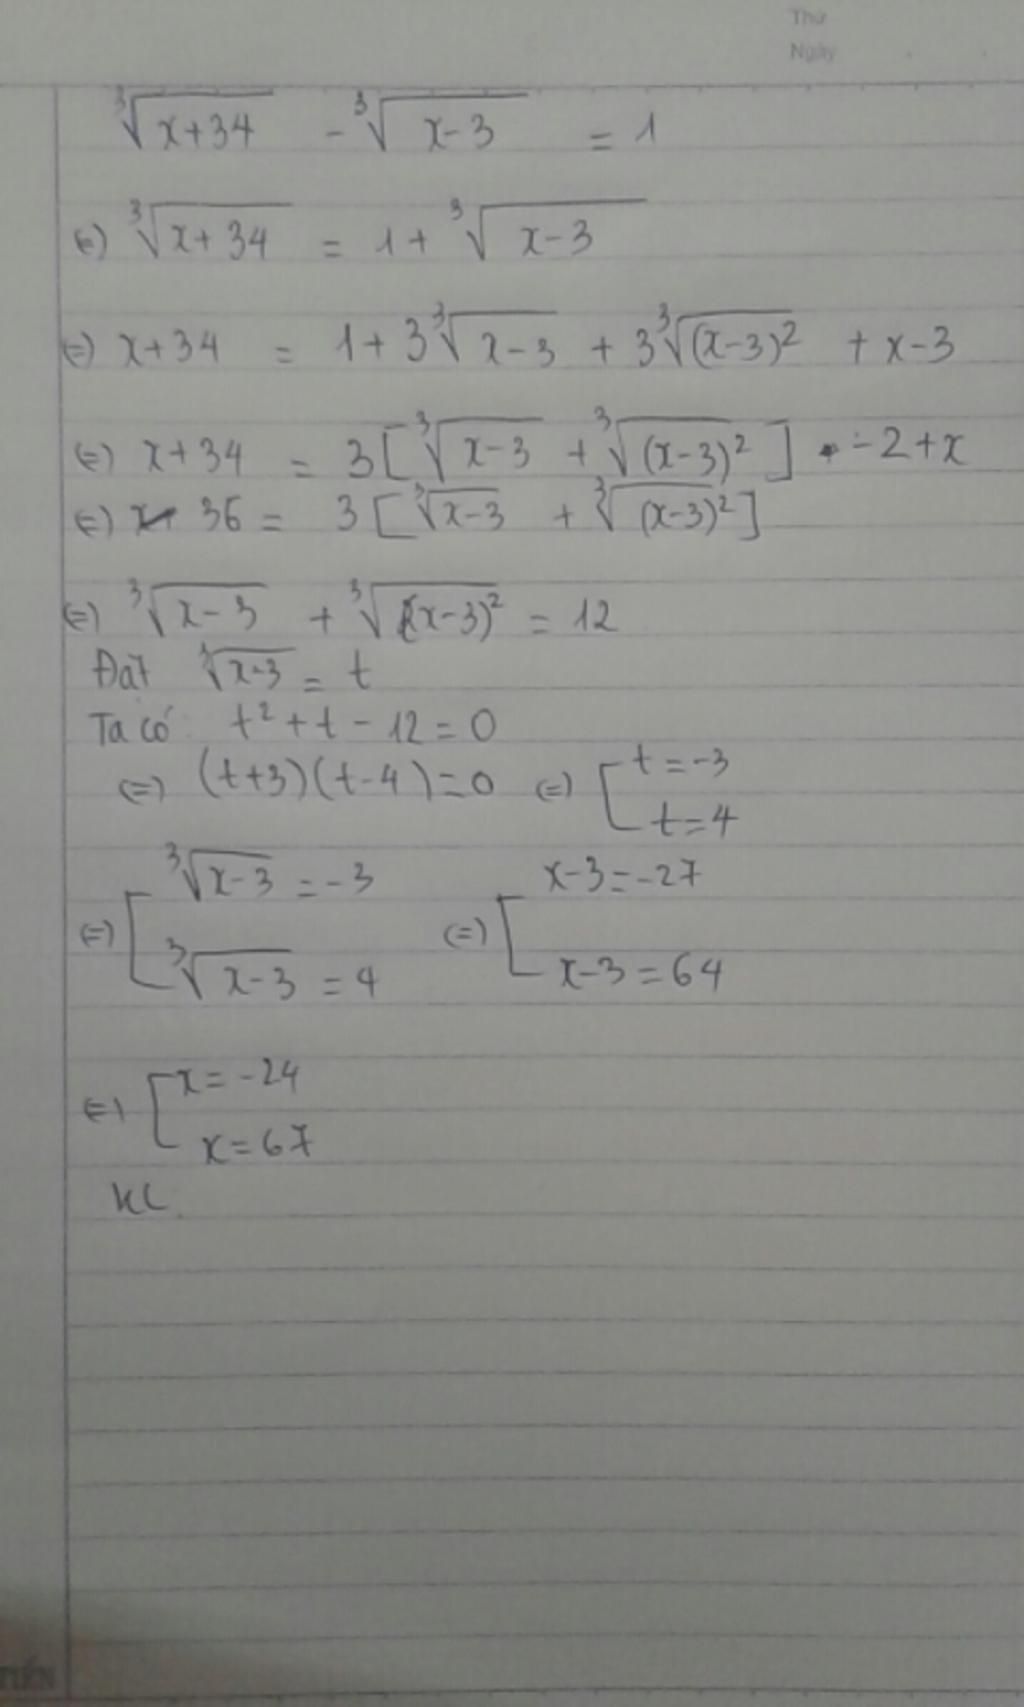 Thứ
Ngày
∛(x+34) - ∛(x-3) = 1
(=) ∛(x+34) = 1 + ∛(x-3)
(=) x+34 = 1 + 3∛(x-3) + 3∛((x-3)²) + x-3
(=) x+34 = 3[∛(x-3) + ∛((x-3)²)] -2+x
(=) 36 = 3[∛(x-3) + ∛((x-3)²)]
(=) ∛(x-3) + ∛((x-3)²) = 12
Đặt ∛(x-3) = t
Ta có: t² + t - 12 = 0
(=) (t+3)(t-4)=0 (=) [ t=-3
t=4
(=) [ ∛(x-3) = -3 (=) [ x-3=-27
∛(x-3) = 4 x-3=64
(=) [ x=-24
x=67
KL
TIẾN